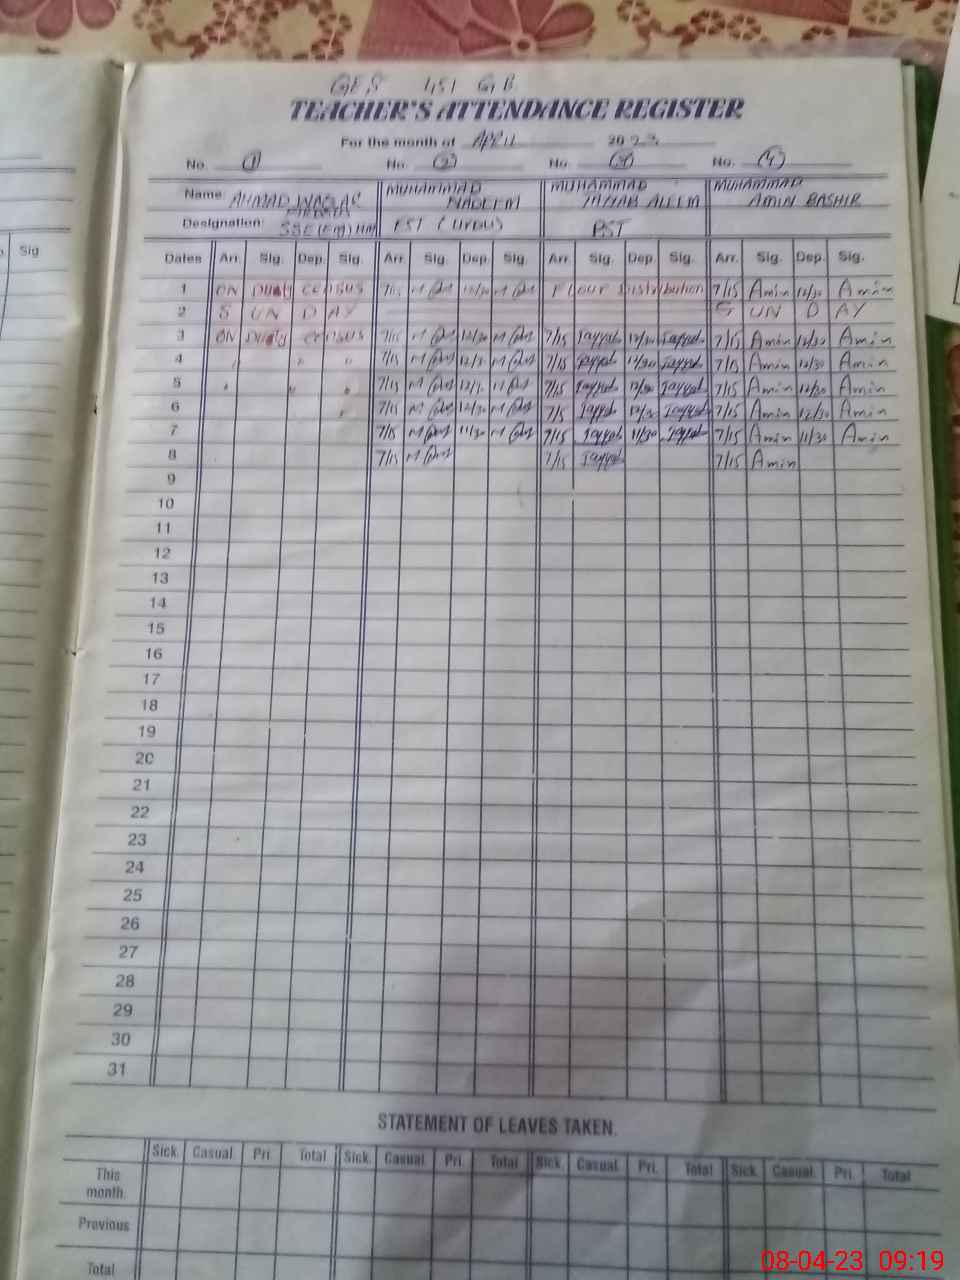 GES 451 GB
TEACHER'S ATTENDANCE REGISTER
For the month of APRIL 2023
No. (1) No. (2) No. (3) No. (4)
Name: AHMAD WAQAR MUHAMMAD NADEEM MUHAMMAD TAYYAB ALEEM MUHAMMAD AMIN BASHIR
Designation: SSE (EM) HM EST (URDU) PST
Sig
Dates Arr. Sig. Dep. Sig. Arr. Sig. Dep. Sig. Arr. Sig. Dep. Sig. Arr. Sig. Dep. Sig.
1 ON Duety census 7/15 12/30 Flour Distribution 7/15 Amin 12/30 Amin
2 SUNDAY SUNDAY
3 ON Duety census 7/15 12/30 7/15 Tayyab 12/30 Tayyab 7/15 Amin 12/30 Amin
4 " " " 7/15 12/30 7/15 Tayyab 12/30 Tayyab 7/15 Amin 12/30 Amin
5 " " " 7/15 7/15 Tayyab 12/30 Tayyab 7/15 Amin 12/30 Amin
6 7/15 12/30 7/15 Tayyab 12/30 Tayyab 7/15 Amin 12/30 Amin
7 7/15 11/30 7/15 Tayyab 11/30 Tayyab 7/15 Amin 11/30 Amin
8 7/15 7/15 Tayyab 7/15 Amin
9
10
11
12
13
14
15
16
17
18
19
20
21
22
23
24
25
26
27
28
29
30
31
STATEMENT OF LEAVES TAKEN.
Sick. Casual Pri. Total Sick. Casual. Pri. Total Sick. Casual. Pri. Total Sick. Casual. Pri. Total
This month.
Previous
Total
08-04-23 09:19